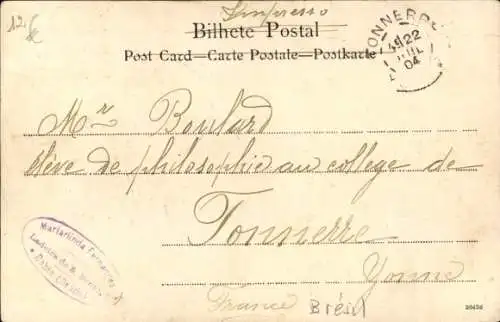 12€
Impresso
Bilhete Postal
Post Card—Carte Postale—Postkarte
TONNERRE
22
JUIL
04
Mr Boulard
élève de philosophie au collège de
Tonnerre
Yonne
France Brésil
Mariarlinda
Ladeira de S.
Bahia